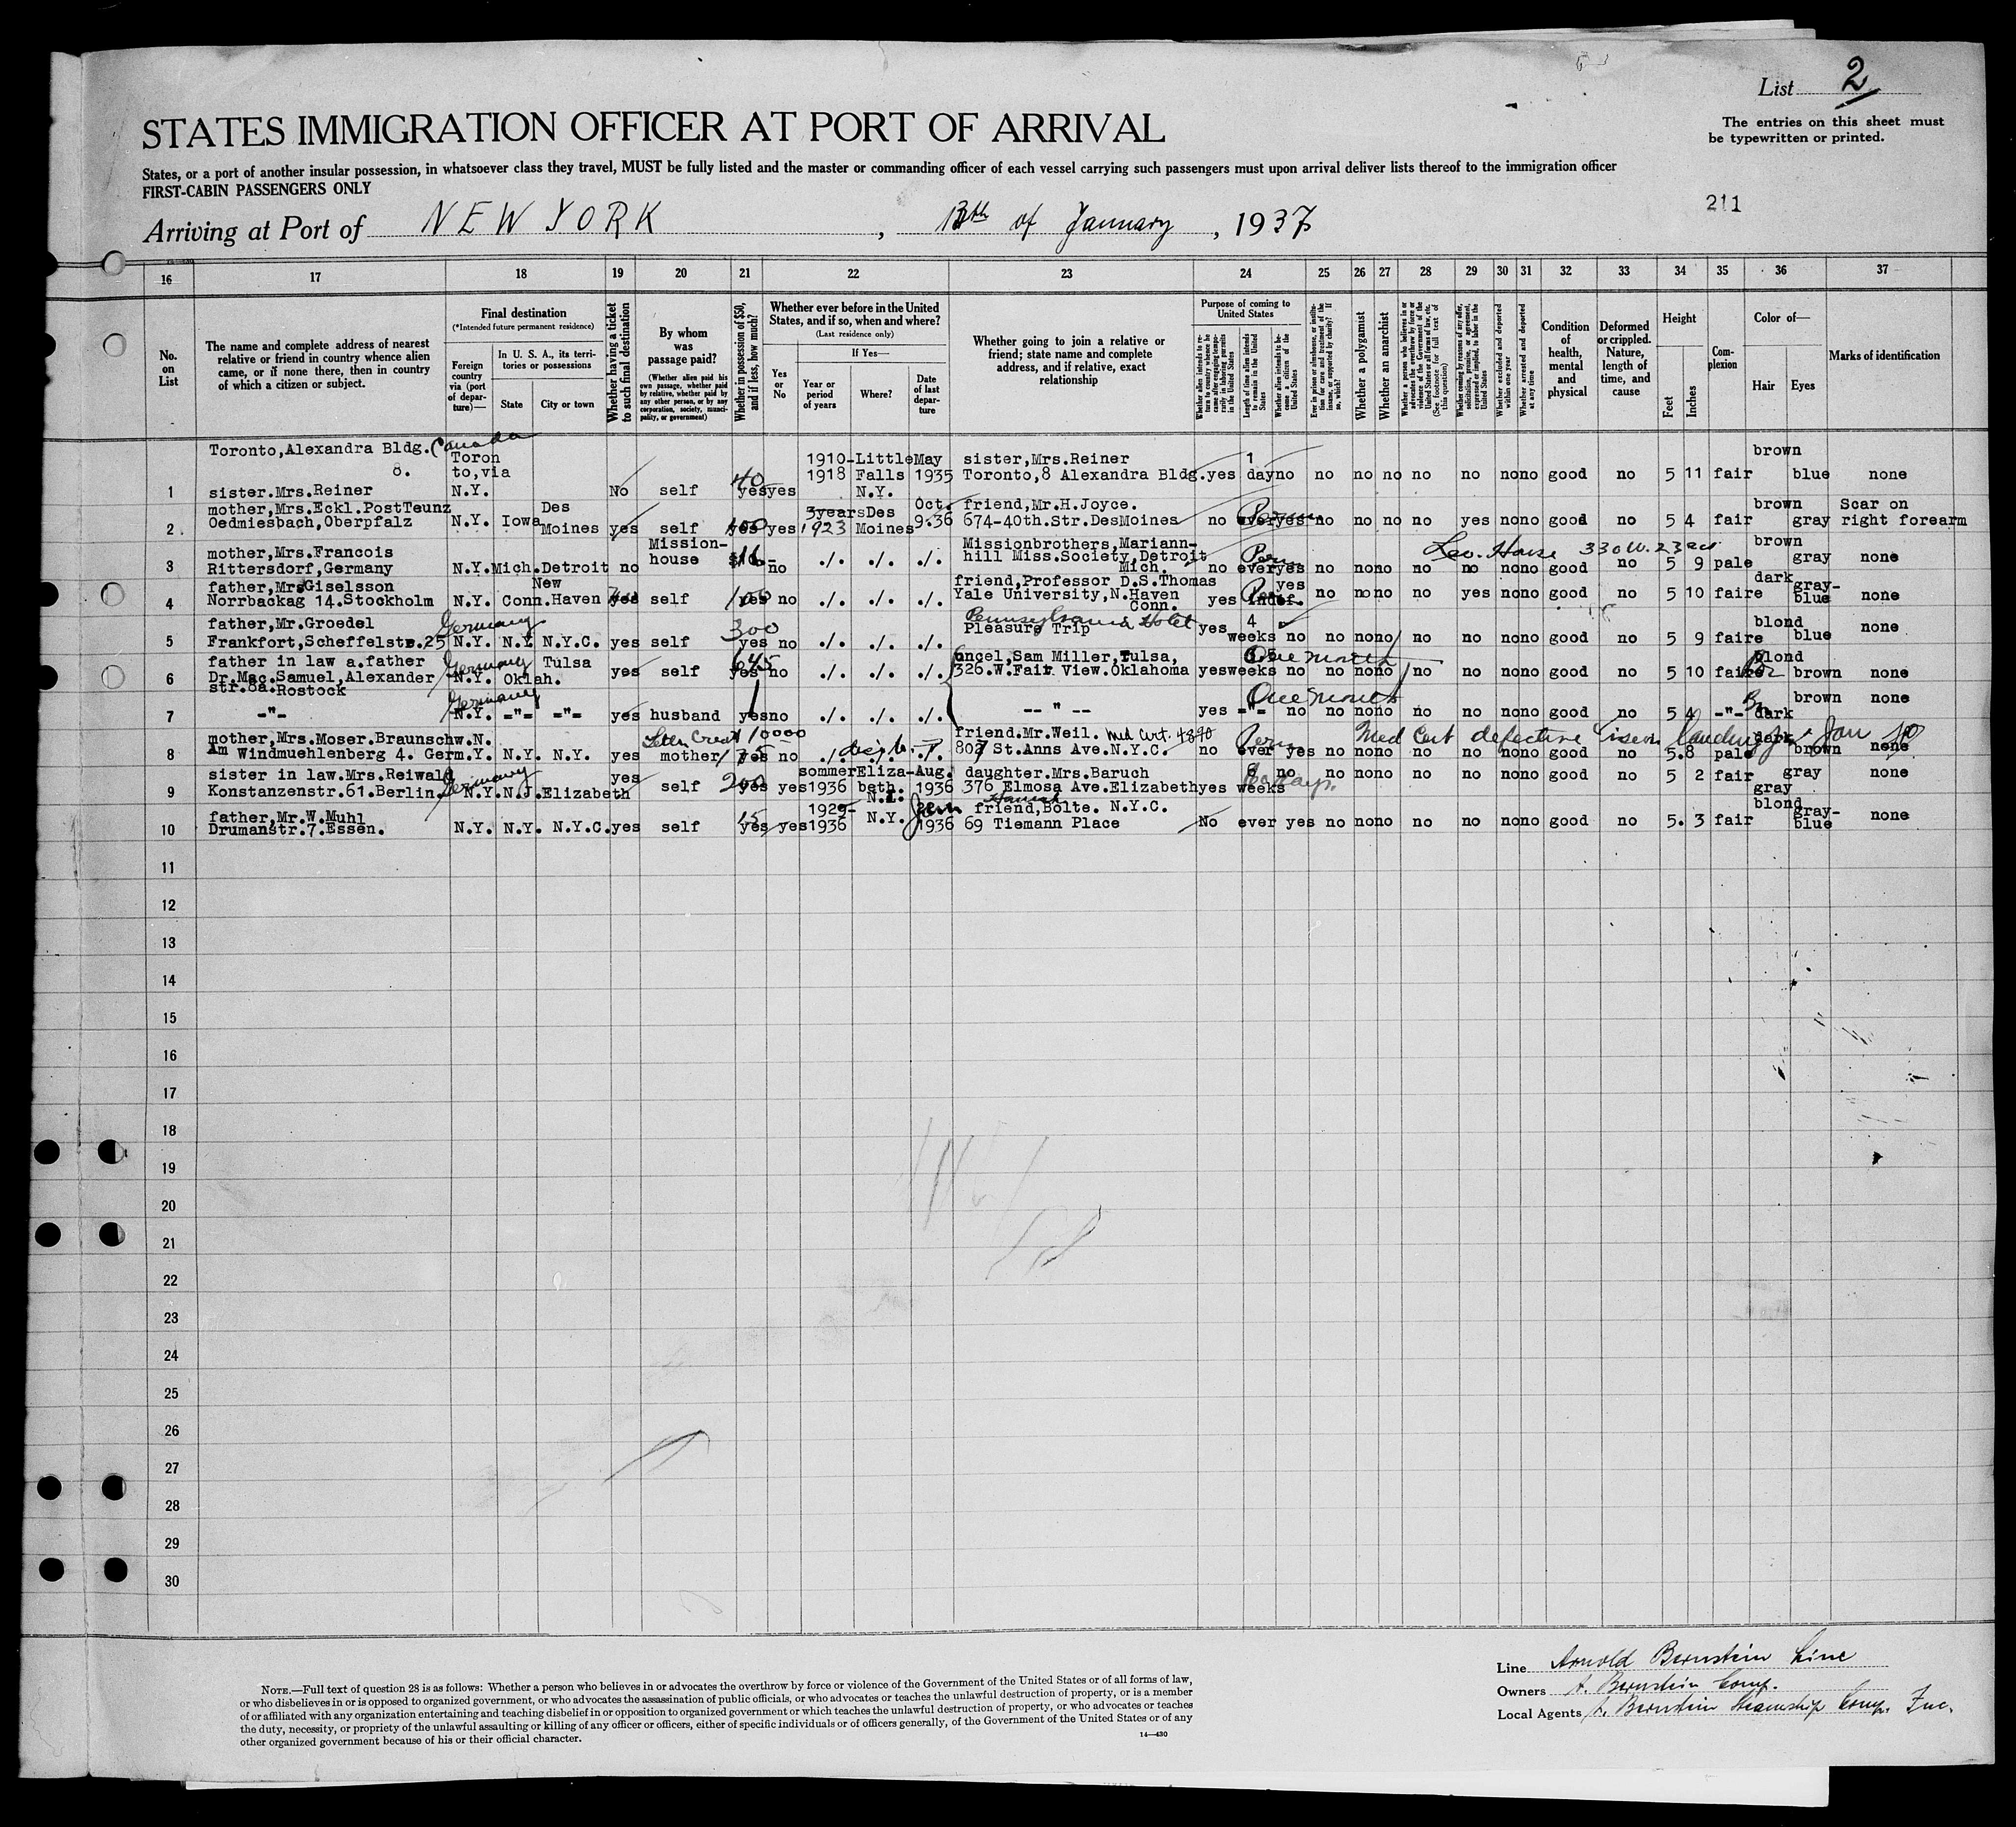 List 2
STATES IMMIGRATION OFFICER AT PORT OF ARRIVAL
The entries on this sheet must
be typewritten or printed.
States, or a port of another insular possession, in whatsoever class they travel, MUST be fully listed and the master or commanding officer of each vessel carrying such passengers must upon arrival deliver lists thereof to the immigration officer
FIRST-CABIN PASSENGERS ONLY
211
Arriving at Port of NEW YORK, of January, 1937
16 17 18 19 20 21 22 23 24 25 26 27 28 29 30 31 32 33 34 35 36 37
No. on List
The name and complete address of nearest relative or friend in country whence alien came, or if none there, then in country of which a citizen or subject.
Final destination
(*Intended future permanent residence)
Foreign country via (port of departure)—
In U. S. A., its territories or possessions
State
City or town
Whether having a ticket to such final destination
By whom was passage paid?
(Whether alien paid his own passage, whether paid by relative, whether paid by any other person, or by any corporation, society, municipality, or government)
Whether in possession of $50, and if less, how much?
Whether ever before in the United States, and if so, when and where?
(Last residence only)
Yes or No
If Yes—
Year or period of years
Where?
Date of last departure
Whether going to join a relative or friend; state name and complete address, and if relative, exact relationship
Purpose of coming to United States
Whether alien intends to return to country whence he came after engaging temporarily in laboring pursuits in the United States
Length of time alien intends to remain in the United States
Whether alien intends to become a citizen of the United States
Ever in prison or almshouse, or institution for care and treatment of the insane, or supported by charity? If so, which?
Whether a polygamist
Whether an anarchist
Whether a person who believes in or advocates the overthrow by force or violence of the Government of the United States or all forms of law, etc. (See footnote for full text of this question)
Whether coming by reasons of any offer, solicitation, promise, or agreement, expressed or implied, to labor in the United States
Whether excluded and deported within one year
Whether arrested and deported at any time
Condition of health, mental and physical
Deformed or crippled. Nature, length of time, and cause
Height
Feet
Inches
Complexion
Color of—
Hair
Eyes
Marks of identification
Toronto,Alexandra Bldg. Canada Toron 1910-Little May sister,Mrs.Reiner 1 brown
8. to,via 40 1918 Falls 1935 Toronto,8 Alexandra Bldg. yes day no no no no no no no no good no 5 11 fair blue none
1 sister.Mrs.Reiner N.Y. No self yes yes N.Y.
mother,Mrs.Eckl.PostTeunz Des 3years Des Oct. friend,Mr.H.Joyce. brown Scar on
2. Oedmiesbach,Oberpfalz N.Y. Iowa Moines yes self 100 yes yes 1923 Moines 9.36 674-40th.Str.DesMoines no ever yes no no no no yes no no good no 5 4 fair gray right forearm
mother,Mrs.Francois Mission- Missionbrothers,Mariann- brown
3 Rittersdorf,Germany N.Y. Mich. Detroit no house no ./. ./. ./. hill Miss.Society,Detroit Mich. no ever yes no no no no no no no good no 5 9 pale gray none
Leo. House 330 W. 23
father,MrsGiselsson New friend,Professor D.S.Thomas yes dark gray-
4 Norrbackag 14.Stockholm N.Y. Conn. Haven yes self 100 yes no ./. ./. ./. Yale University,N.Haven Conn. yes Indef. no no no no yes no no good no 5 10 faire blue none
father,Mr.Groedel Germany 300 Pennsylvania Hotel 4 blond
5 Frankfort,Scheffelstr.25 N.Y. N.Y. N.Y.C. yes self yes no ./. ./. ./. Pleasure Trip yes weeks no no no no no no no no good no 5 9 faire blue none
father in law a.father Germany Tulsa 645 oncel,Sam Miller,Tulsa, One month blond
6 Dr.Mac.Samuel,Alexander N.Y. Oklah. yes self yes no ./. ./. ./. 326.W.Fair View.Oklahoma yes weeks no no no no no no no no good no 5 10 faire brown none
str.8a.Rostock
7 -"- Germany N.Y. ="= ="= yes husband yes no ./. ./. ./. -- " -- yes One month -"- no no no no no no no no good no 5 4 -"- dark brown none
mother,Mrs.Moser.Braunschw.N. Letter Credit 10000 friend.Mr.Weil. Med Cert. Med Cert defective vision dark
8 Am Windmuehlenberg 4. Germ. N.Y. N.Y. N.Y. yes mother 75 yes no 807 St.Anns Ave.N.Y.C. no ever yes no no no no no no no good no 5.8 pale brown none
sister in law.Mrs.Reiwald Germany yes sommer Eliza- Aug. daughter.Mrs.Baruch 8 no gray
9 Konstanzenstr.61.Berlin. N.Y. N.J. Elizabeth self 200 yes yes 1936 beth. N.J. 1936 376 Elmosa Ave.Elizabeth yes weeks no no no no no no no good no 5 2 fair gray none
father,Mr.W.Muhl 15 1929- friend,Bolte. N.Y.C. blond gray-
10 Drumanstr.7.Essen. N.Y. N.Y. N.Y.C. yes self yes yes 1936 N.Y. 1936 69 Tiemann Place No ever yes no no no no no no no good no 5. 3 fair blue none
11
12
13
14
15
16
17
18
19
20
21
22
23
24
25
26
27
28
29
30
NOTE.—Full text of question 28 is as follows: Whether a person who believes in or advocates the overthrow by force or violence of the Government of the United States or of all forms of law,
or who disbelieves in or is opposed to organized government, or who advocates the assassination of public officials, or who advocates or teaches the unlawful destruction of property, or is a member
of or affiliated with any organization entertaining and teaching disbelief in or opposition to organized government or which teaches the unlawful destruction of property, or who advocates or teaches
the duty, necessity, or propriety of the unlawful assaulting or killing of any officer or officers, either of specific individuals or of officers generally, of the Government of the United States or of any
other organized government because of his or their official character.
14—430
Line Arnold Bernstein Line
Owners A. Bernstein Comp.
Local Agents A. Bernstein Steamship Comp. Inc.